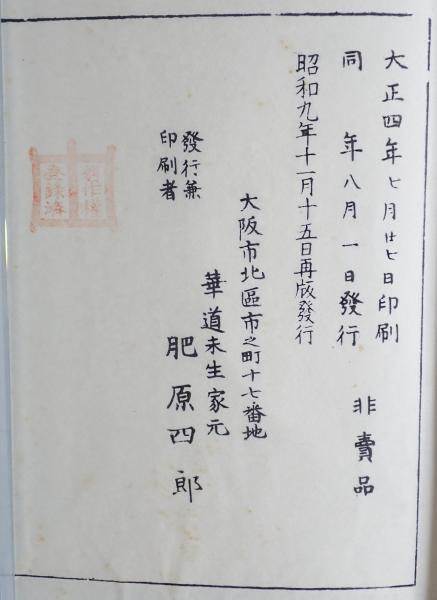 大正四年七月廿七日印刷
同　年八月一日發行
非賣品
昭和九年十一月十五日再版發行
大阪市北區市之町十七番地
華道未生家元
發行兼
印刷者
肥原四郎
著作権
登録済